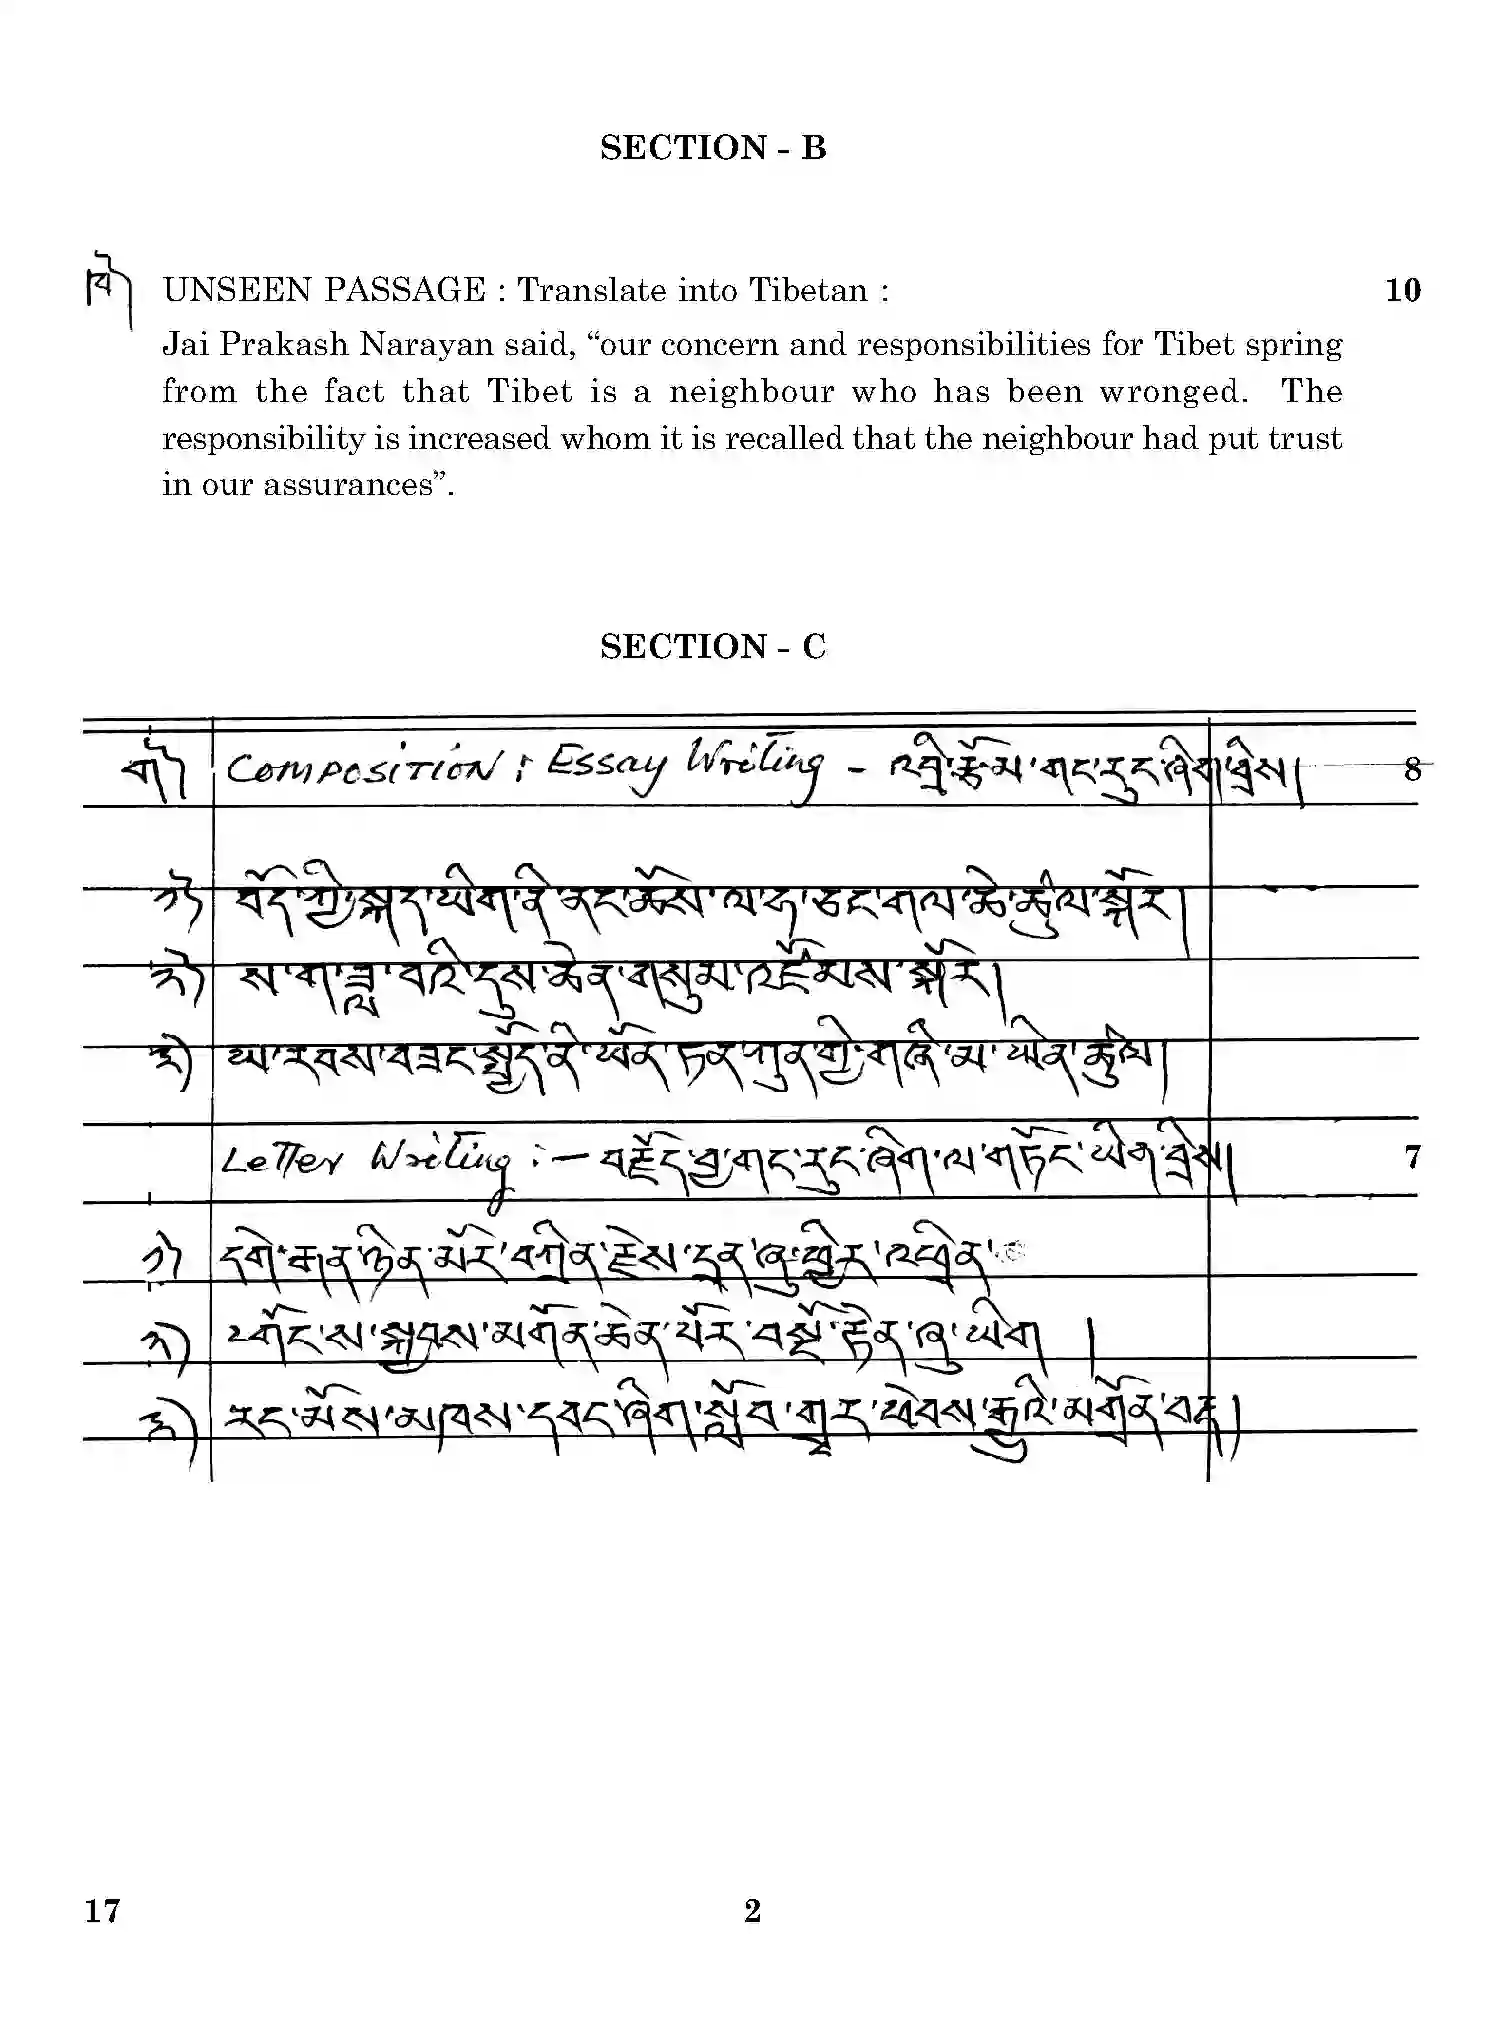 SECTION - B
ཁ༽ UNSEEN PASSAGE : Translate into Tibetan : 10
Jai Prakash Narayan said, “our concern and responsibilities for Tibet spring
from the fact that Tibet is a neighbour who has been wronged. The
responsibility is increased whom it is recalled that the neighbour had put trust
in our assurances”.
SECTION - C
ག༽ Composition : Essay Writing - འབྲི་རྩོམ་གང་རུང་ཞིག་བྲིས། 8
༡༽ བོད་ཀྱི་སྐད་ཡིག་ནི་ནང་ཆོས་ལ་ཧ་ཅང་གལ་ཆེ་ཚུལ་སྐོར།
༢༽ ས་ག་ཟླ་བའི་དུས་ཆེན་གསུམ་འཛོམས་སྐོར།
༣༽ ཡ་རབས་བཟང་སྤྱོད་ནི་ཡོན་ཏན་ཀུན་གྱི་གཞི་མ་ཡིན་ཚུལ།
Letter Writing :- བརྗོད་བྱ་གང་རུང་ཞིག་ལ་གཏོང་ཡིག་བྲིས། 7
༡༽ དགེ་རྒན་ཉིན་མོར་བཀྲིན་རྗེས་དྲན་ཞུ་ཁྱེར་འཕྲིན་
༢༽ ༸གོང་ས་སྐྱབས་མགོན་ཆེན་པོར་བསྔོ་རྟེན་ཞུ་ཡིག །
༣༽ རང་མོས་མཁས་དབང་ཞིག་སློབ་གྲྭར་ཕེབས་རྒྱུའི་མགྲོན་བརྡ།
17 2